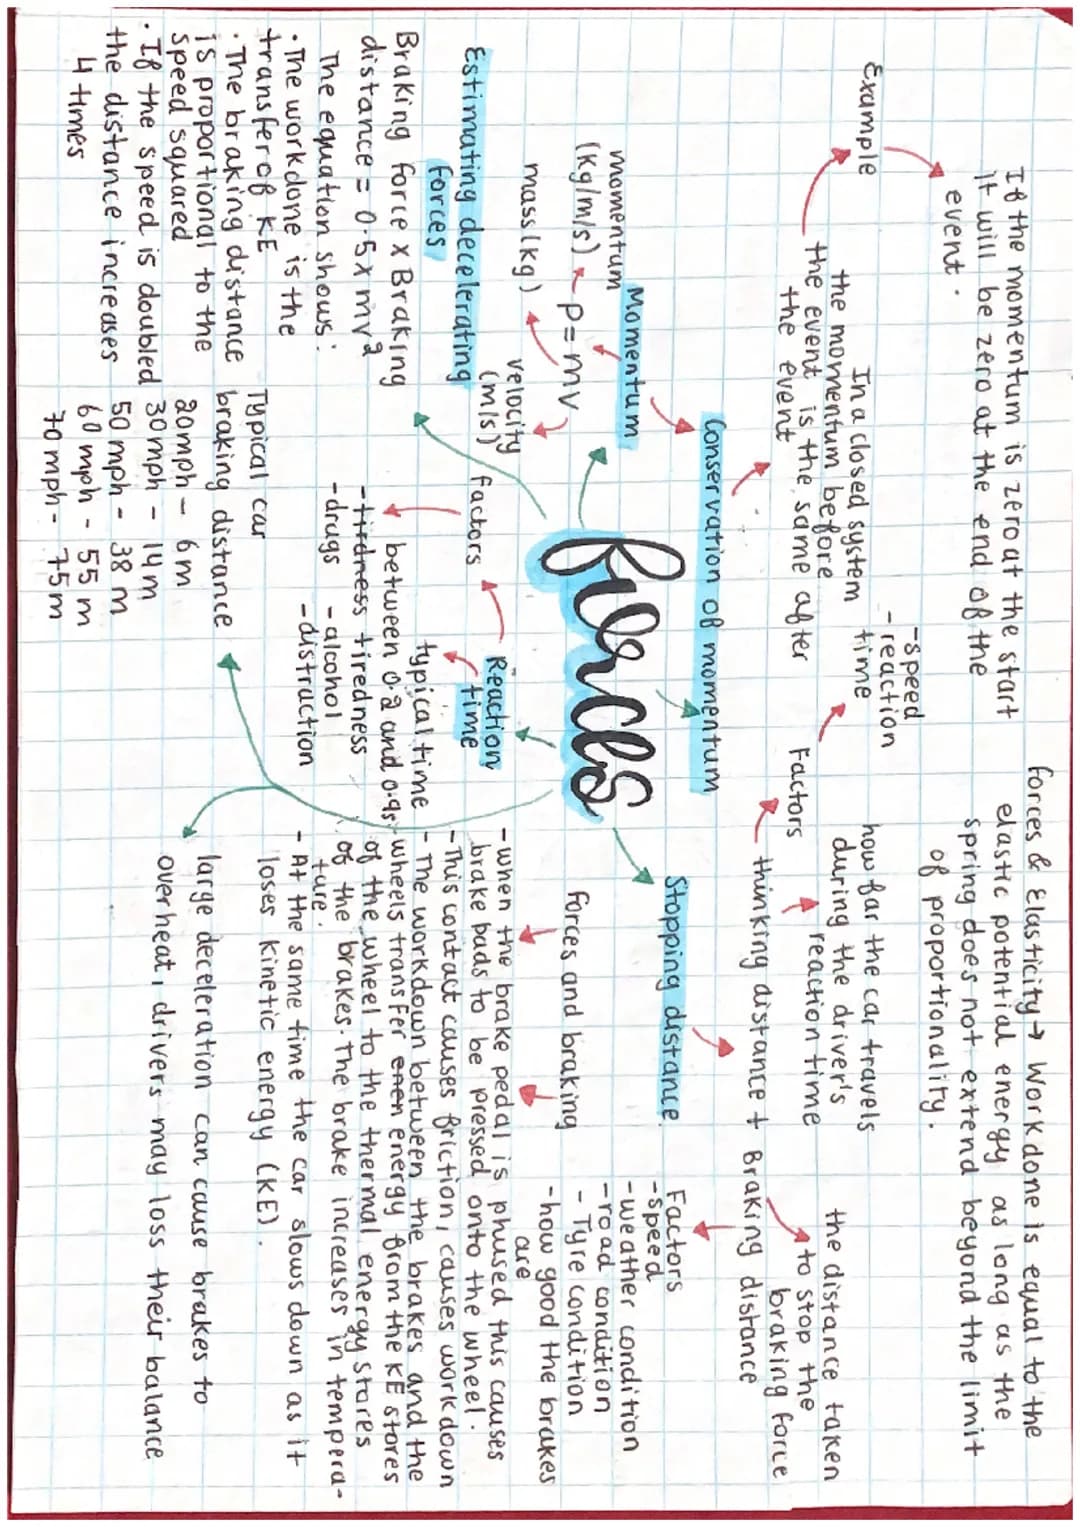 If the momentum is zero at the start
it will be zero at the end of the
event.
Example
In a closed system
the momentum before
the event is the same after
the event
Conservation of momentum
Momentum
momentum
(kg/m/s)
P = mv
mass (kg)
velocity
(m/s)
Forces & Elasticity → Work done is equal to the
elastic potential energy as long as the
spring does not extend beyond the limit
of proportionality.
-speed
-reaction
time
Factors
how far the car travels
during the driver's
reaction time
the distance taken
to stop the
braking force
thinking distance + Braking distance
Stopping distance
Factors
-speed
-weather condition
-road condition
- Tyre condition
-how good the brakes
are
forces
Estimating decelerating
forces
Braking force x Braking
distance = 0.5 x mv²
The equation shows:
· The workdone is the
transfer of KE
· The braking distance
is proportional to the
speed squared
· If the speed is doubled
the distance increases
4 times
Reaction
time
factors
typical time
between 0.2 and 0.9s
-tirdness tiredness
-drugs
-alcohol
-distraction
Typical car
braking distance
20mph - 6m
30mph - 14m
50mph - 38m
60mph - 55m
70mph - 75m
Forces and braking
-when the brake pedal is phused this causes
brake pads to be pressed onto the wheel.
-This contact causes friction, causes workdown
- The workdown between the brakes and the
wheels transfer enen energy from the KE stores
of the wheel to the thermal energy stores
of the brakes. The brake increases in tempera-
ture.
- At the same time the car slows down as it
loses kinetic energy (KE).
large deceleration can cause brakes to
overheat, drivers may loss their balance